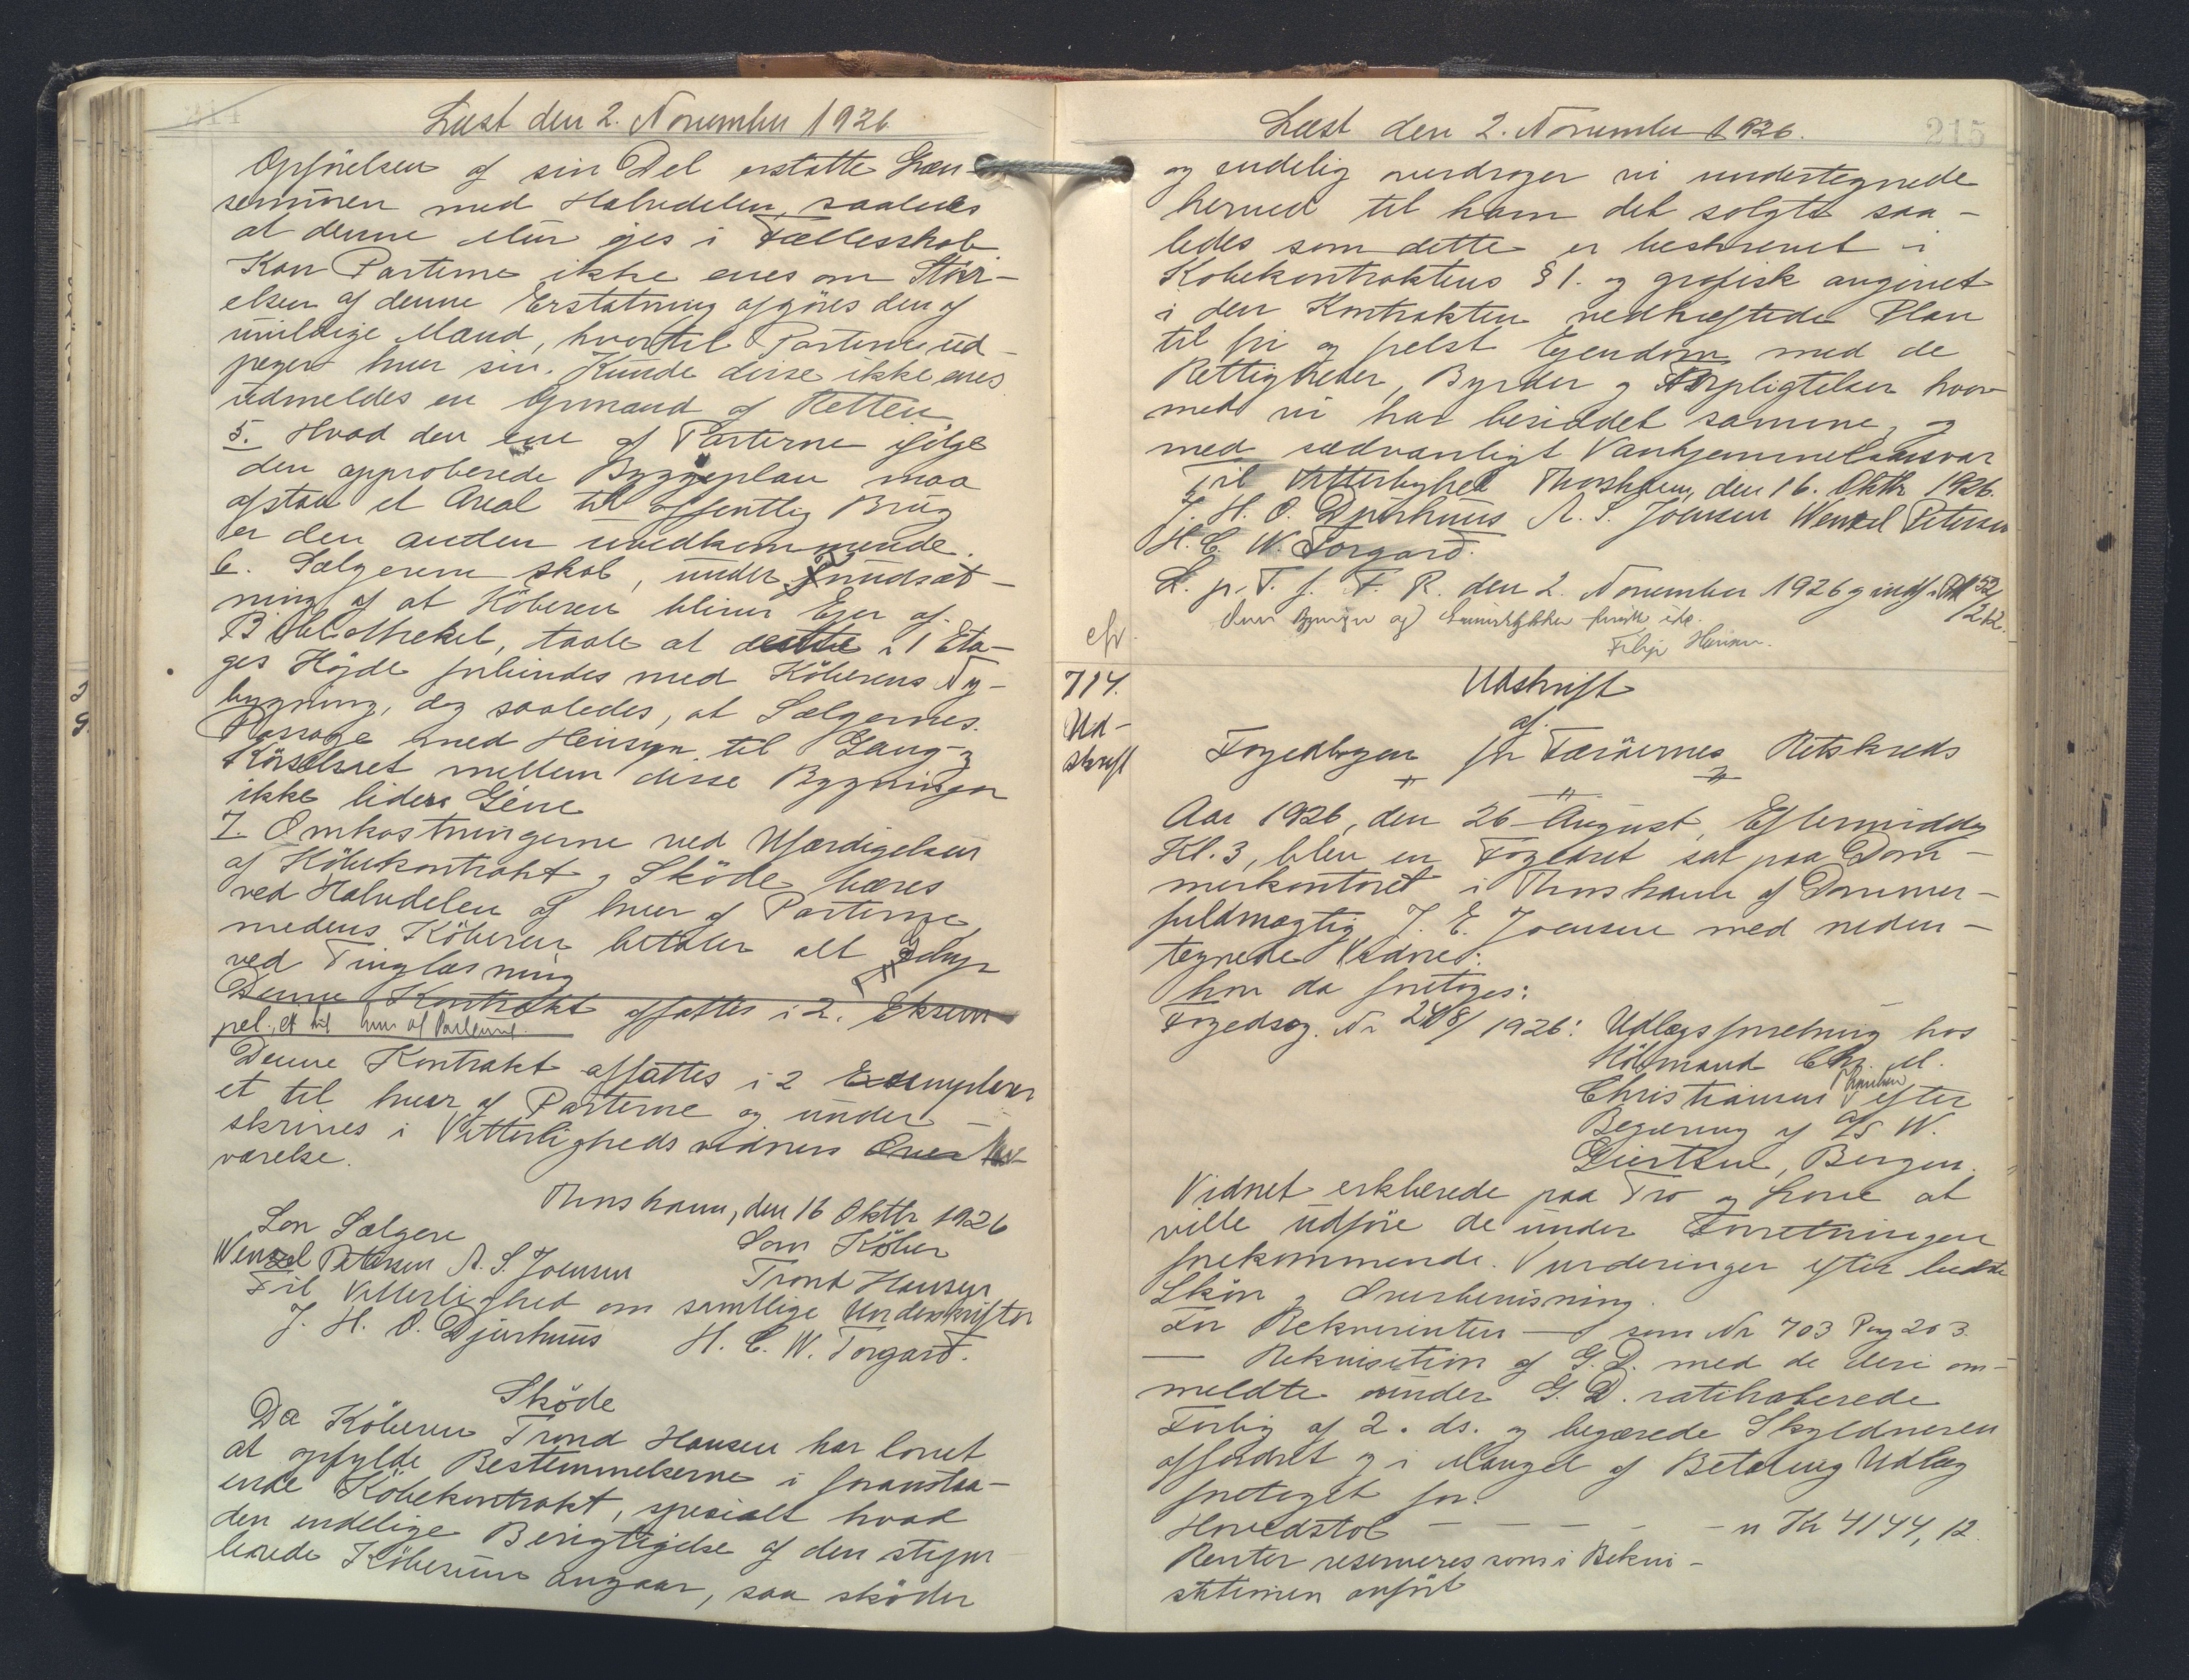 214
Læst den 2. November 1926
Opførelsen af sin Del erstatte Græn-
semuren med Halvdelen, saaledes
at denne Mur ejes i Fællesskab
Kan Parterne ikke enes om Stør-
elsen af denne Erstatning afgøres den af
uvildige Mænd, hvortil Parterne ud-
peger hver sin. Kunde disse ikke enes
udmeldes en Opmand af Retten
5. Hvad den ene af Parterne ifølge
den approberede Byggeplan maa
afstaa et Areal til offentlig Brug
er den anden uvedkommende.
6. Sælgerne skal, under Forudsæt-
ning af at Køberen bliver Ejer af
Bibliotheket, taale at dette i 1 Eta-
ges Højde forbindes med Køberens Ny-
bygning, dog saaledes, at Sælgernes
Passage med Hensyn til Gang- og
Kørselsret mellem disse Bygninger
ikke lider Géne
7. Omkostningerne ved Udfærdigelsen
af Købekontrakt og Skøde bæres
ved Halvdelen af hver af Parterne
medens Køberen betaler alt
ved Tinglæsning
Denne Kontrakt affattes i 2. Eksem
pel., et til hver af Parterne.
Denne Kontrakt affattes i 2 Exemplarer
et til hver af Parterne og under-
skrives i Vitterlighedsvidners Over
værelse.
Thorshavn, den 16 Oktbr 1926
Som Sælgere
Som Køber
Wenzel Petersen A. S. Joensen
Trond Hansen
Til Vitterlighed om samtlige Underskrifter
J. H. O. Djurhuus H. C. W. Torgard.
Skøde
Da Køberen Trond Hansen har lovet
at opfylde Bestemmelserne i foranstaa-
ende Købekontrakt, specielt hvad
den endelige Berigtigelse af den stipu-
lerede Købesum angaar, saa skøder
215
Læst den 2. November 1926.
og endelig overdrager vi undertegnede
herved til ham det solgte saa-
ledes som dette er beskrevet i
Købekontraktens § 1. og grafisk angivet
i den Kontrakten vedhæftede Plan
til fri og frelst Ejendom med de
Rettigheder, Byrder og Forpligtelser hvor
med vi har besiddet samme, og
med sædvanligt Vanhjemmelsansvar
Til Vitterlighed Thorshavn, den 16. Oktbr 1926.
J. H. O. Djurhuus A. S. Joensen Wenzel Petersen
H. C. W. Torgard.
L. p. T. f. F. R. den 2. November 1926 og indf. i
212.
cfr.
714.
Ud-
skrift
Udskrift
af
Fogedbogen for Færøernes Retskreds
Aar 1926, den 26 August, Eftermiddag
Kl. 3, blev en Fogedret sat paa Dom-
merkontoret i Thorshavn af Dommer-
fuldmægtig J. E. Joensen med neden-
tegnede Vidne:
hvor da foretoges:
Fogedsag. Nr 248/1926: Udlægsforretning hos
Købmand Chr. M.
Christiansen efter
Begæring af A/S W.
Giertsen, Bergen.
Vidnet erklærede paa Tro og Love at
ville udføre de under Forretningen
forekommende Vurderinger efter bedste
Skøn og Overbevisning.
For Rekvirenten — som Nr 703 Pag 203.
— Rekvisition af G. D. med de deri om-
meldte under G. D. ratihaberede
Forlig af 2. ds. og begærede Skyldneren
affordret og i Mangel af Betaling Udlæg
foretaget for:
Hovedstol — — — — — Kr 4144,12.
Renter reserveres som i Rekvi-
sitionen anført